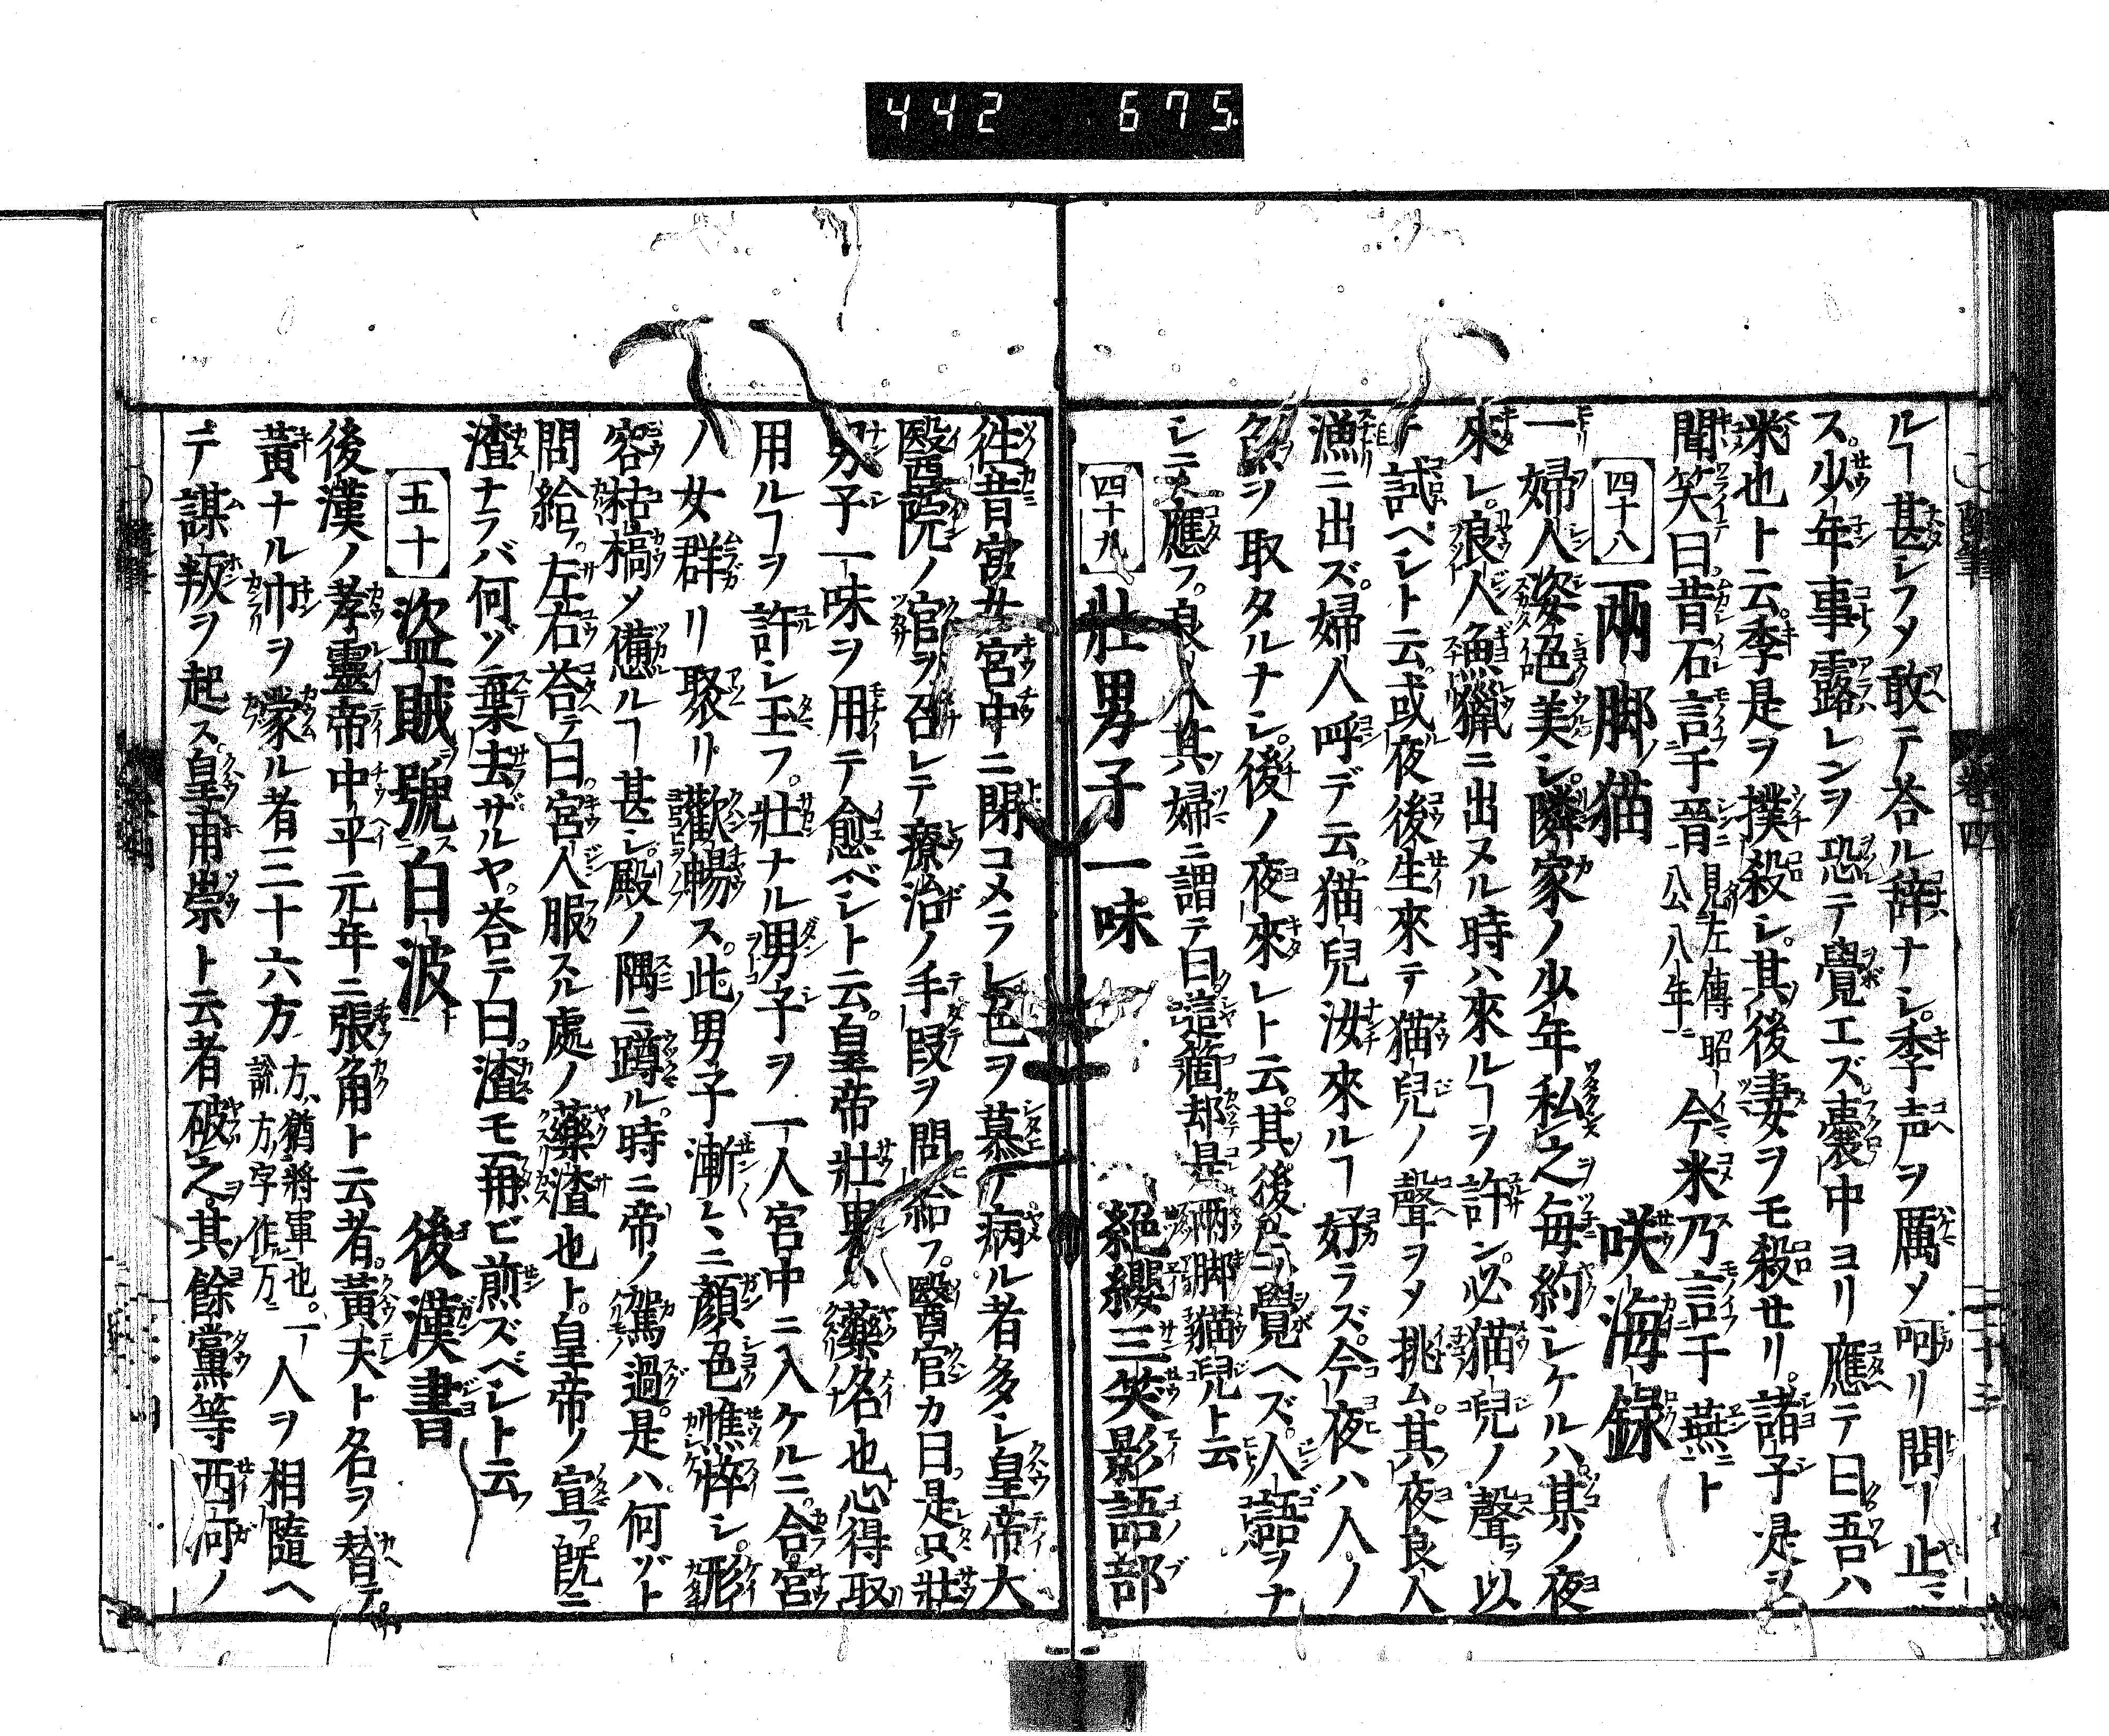 442 675.
ルヿ甚シフメ敢テ荅ル辞ナシ。季声ヲ厲メ呵リ問ヿ止ニ
ス。少年事露レンヲ恐テ覺エズ。嚢中ヨリ應テ曰吾ハ
米也ト云。季是ヲ撲殺シ。其後妻ヲモ殺セリ。諸子是ヲ
聞笑曰。昔石言于晉 見左傳昭公八年 今米乃言于蕪ト
四十八 兩脚猫 咲海錄
一婦人姿色美シ。隣家ノ少年私之毎約シケルハ。其ノ夜
來レ。浪人魚獵ニ出ヌル時ハ來ルヿヲ許ン。必猫兒ノ聲ヲ以
テ試ベシト云。或夜後生來テ猫兒ノ聲ヲメ挑ム。其夜良人
漁ニ出ズ。婦人呼デ云。猫兒汝來ルヿ好ラズ。今夜ハ人ノ
魚ヲ取タルナシ。後ノ夜來レト云。其後ニハ覺ヘズ。人語ヲナ
シニ應フ。良人其婦ニ謂テ曰。這箇却是兩脚猫兒ト云
四十九 壯男子一味 絕纓三笑影語部
徃昔宮女宮中ニ閉コメラレ色ヲ慕テ病ル者多シ皇帝大
醫院ノ官ヲ召レテ療治ノ手段ヲ問給フ。醫官カ曰。是只壯
男子一味ヲ用テ愈ベシト云。皇帝壯男ハ藥名也心得取
用ルヿヲ許シ玉フ。壯ナル男子ヲ一人宮中ニ入ケルニ。合宮
八女群リ聚リ歡暢ス。此男子漸〻ニ顔色憔悴シ。形
容枯槁メ憊ルヿ甚シ。殿ノ隅ニ蹲ル。時ニ帝ノ駕過。是ハ何ヅト
問給フ。左右荅テ曰。宮人服スル處ノ藥渣也ト。皇帝ノ宣フ。既ニ
渣ナラバ何ヅ棄去ザルヤ。荅テ曰。渣モ再ビ煎ズベシト云
五十 盜賊號白波 後漢書
後漢ノ孝靈帝中平元年ニ張角ト云者。黃夫ト名ヲ替テ。
黃ナル巾ヲ蒙ル者三十六方 方猶將軍也。一説方字作万 人ヲ相隨ヘ
テ謀叛ヲ起ス。皇甫嵩ト云者破之。其餘黨等西河ノ